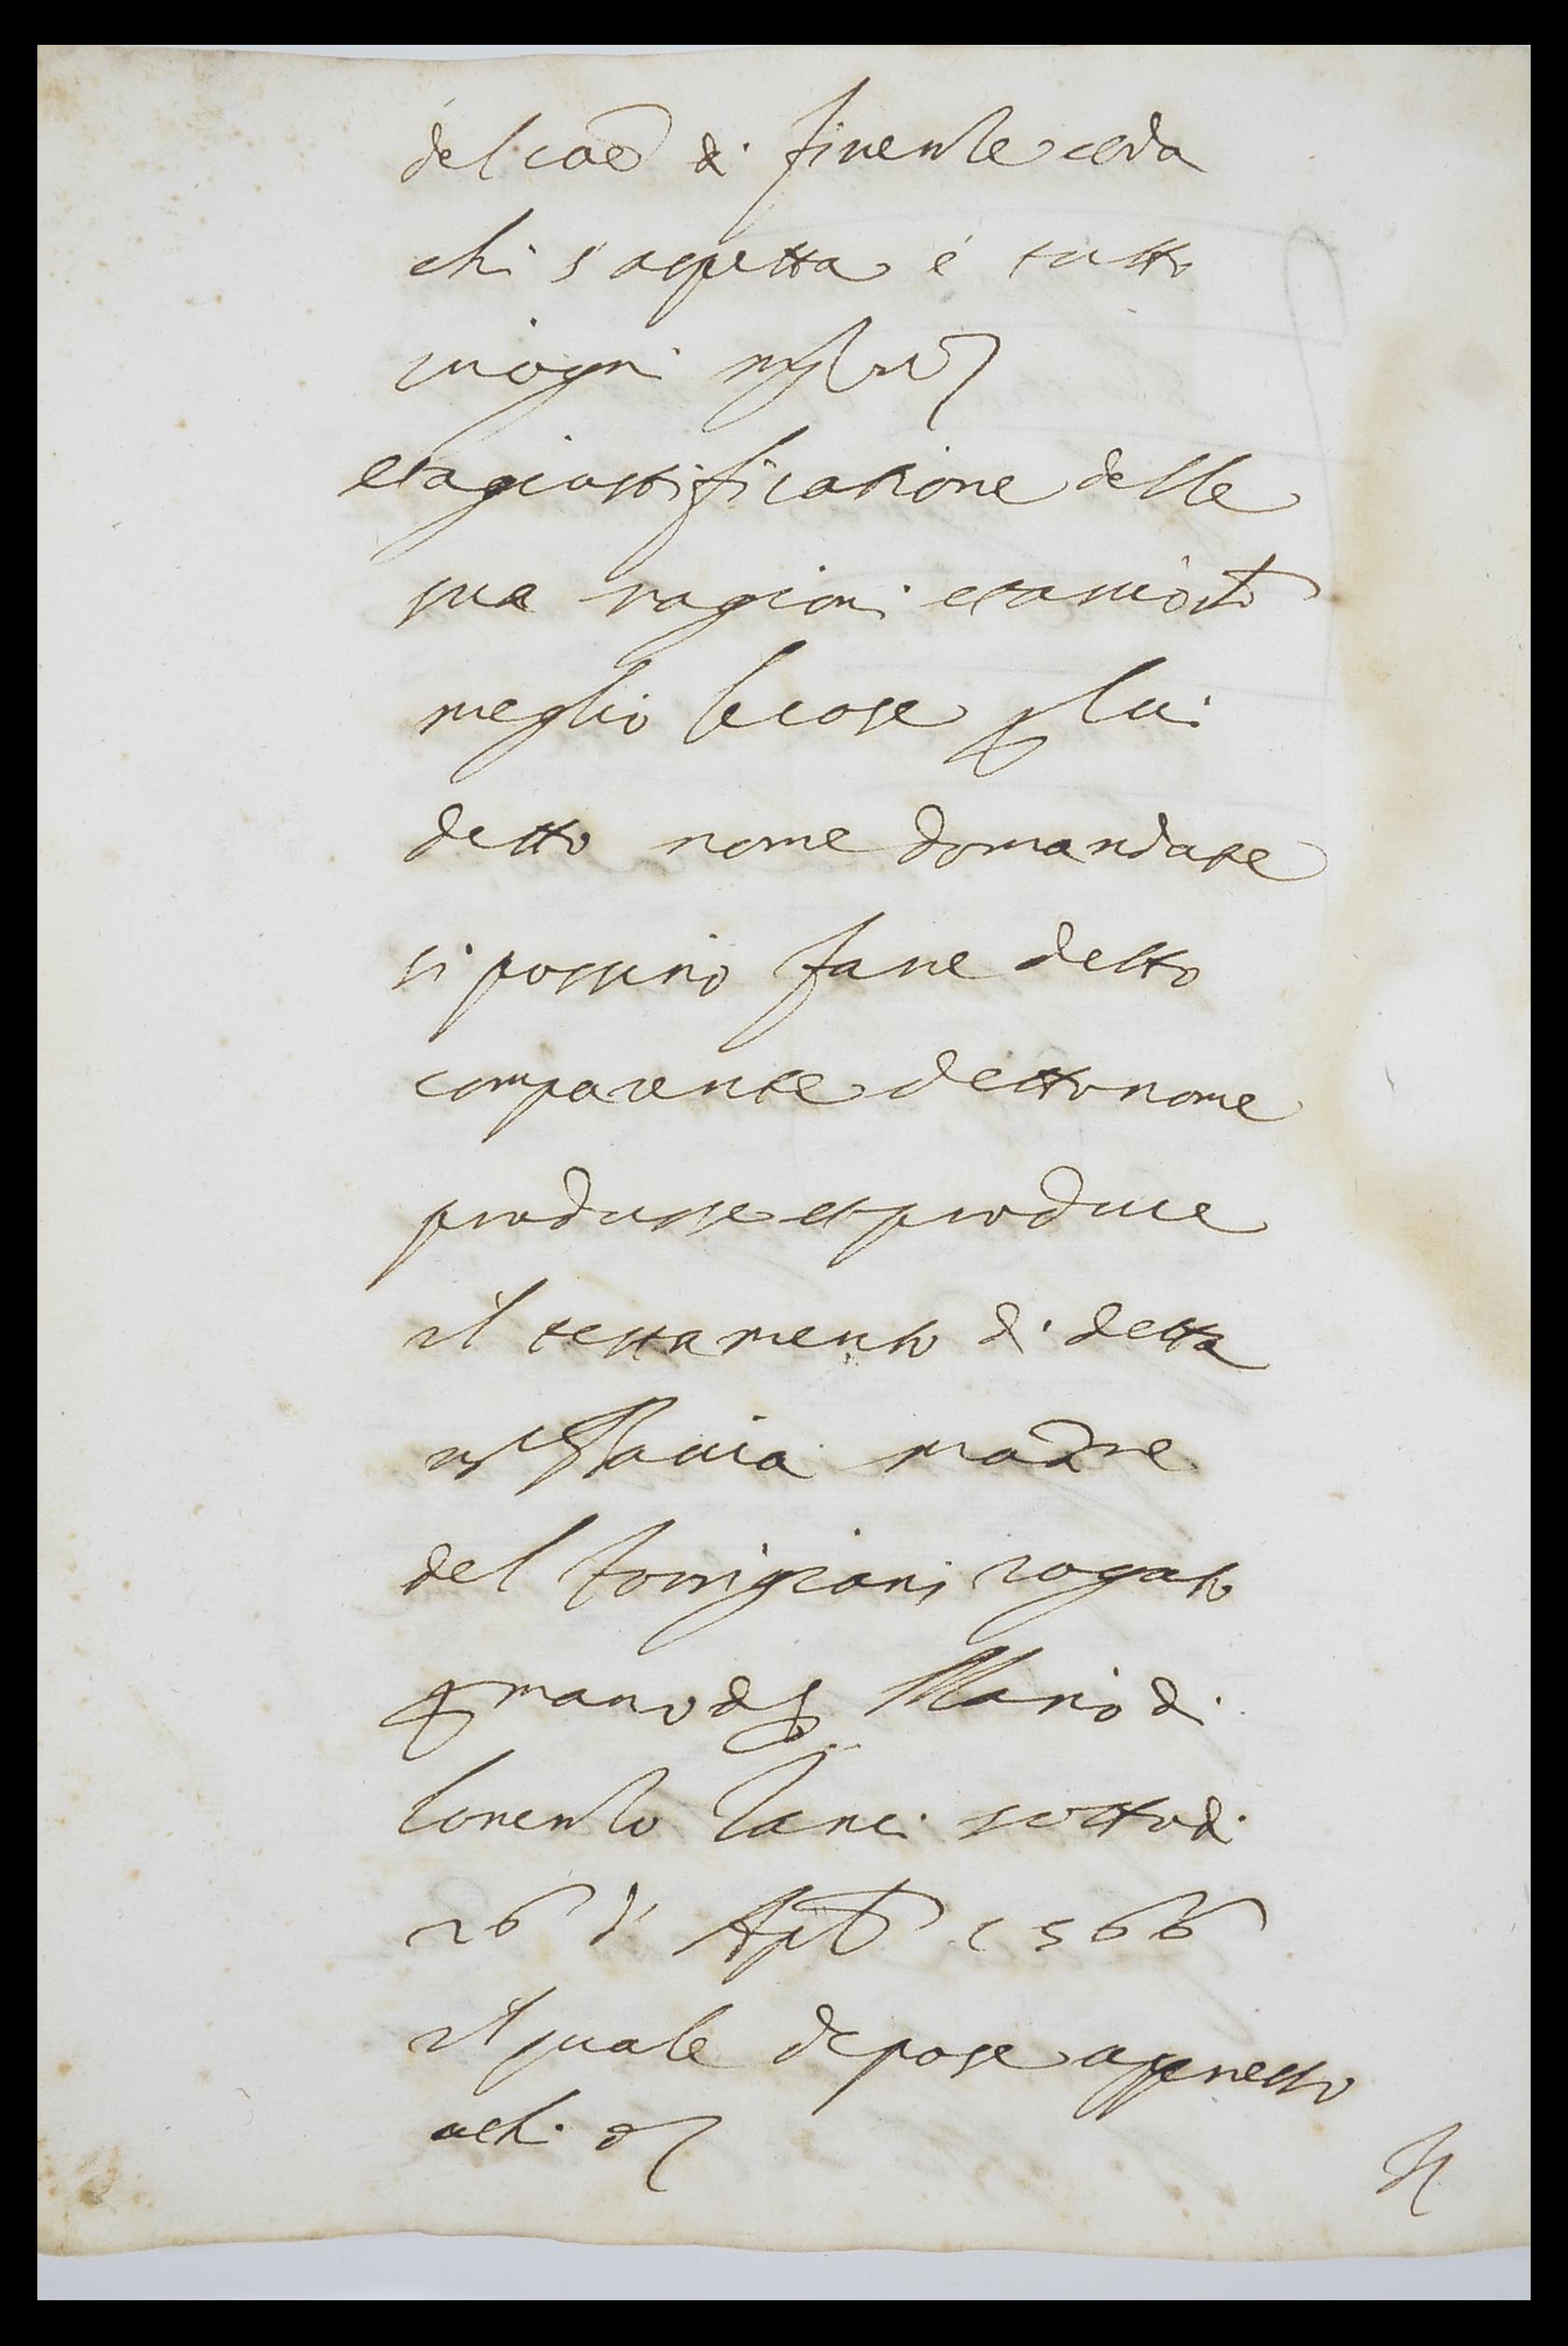 del cae di firente et da
chi s aspetta é tutto
in ogni
et a giustificatione delle
sua ragioni et acciò
meglio le cose p lui
detto nome domandate
si possino fare detto
comparente detto nome
produsse et produce
il testamento di detta
Flavia madre
del Torrigiani rogato
p mano d S Mario di
lorento Tanci sotto di
26 d' Aple 1566
il quale depose appresso
achi